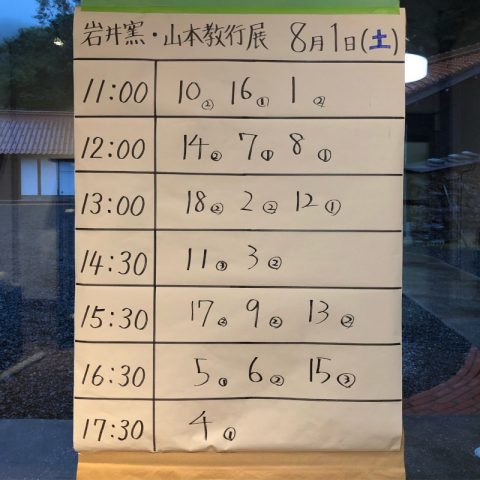 岩井窯・山本教行展 8月1日(土)
11:00 10② 16① 1②
12:00 14② 7① 8①
13:00 18② 2② 12①
14:30 11③ 3②
15:30 17② 9② 13②
16:30 5① 6② 15③
17:30 4①